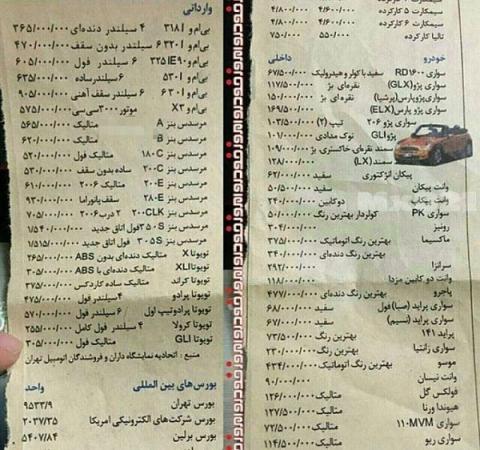 سیمکارت ۵ کارکرده ۴/۶۰۰/۰۰۰ ۴/۸۰۰/۰۰۰
سیمکارت ۶ کارکرده ۴/۶۰۰/۰۰۰ ۴/۸۰۰/۰۰۰
تالیا کارکرده ۵۵۰/۰۰۰ ۷۵۰/۰۰۰
خودرو داخلی
سواری RD۱۶۰۰ سفید با کولر و هیدرولیک ۶۷/۵۰۰/۰۰۰
سواری پژو (GLX) نقره‌ای بژ ۱۱۷/۵۰۰/۰۰۰
سواری پژو پارس (پرشیا) نقره‌ای بژ ۱۵۰/۰۰۰/۰۰۰
سواری پژو پارس (ELX) ۱۶۹/۵۰۰/۰۰۰
سواری پژو ۲۰۶ تیپ (۲) ۱۰۳/۵۰۰/۰۰۰
پژو GLI نوک مدادی ۱۰۱/۰۰۰/۰۰۰
سمند نقره‌ای خاکستری بژ ۱۰۹/۰۰۰/۰۰۰
سمند (LX) ۱۲۸/۰۰۰/۰۰۰
پیکان انژکتوری ۶۲/۰۰۰/۰۰۰
وانت پیکان سفید ۵۰/۵۰۰/۰۰۰
وانت پیکاپ دوکابین ۲۴۰/۰۰۰/۰۰۰
سواری PK کولردار بهترین رنگ ۵۰/۰۰۰/۰۰۰
رونیز ۳۰۴/۰۰۰/۰۰۰
ماکسیما بهترین رنگ اتوماتیک ۳۷۵/۰۰۰/۰۰۰
بهترین رنگ دنده‌ای ۳۴۰/۰۰۰/۰۰۰
سرانزا ۲۹۲/۰۰۰/۰۰۰
وانت دو کابین مزدا ۱۱۸/۰۰۰/۰۰۰
پاجرو بهترین رنگ دنده‌ای ۴۷۷/۰۰۰/۰۰۰
سواری پراید (صبا) فول سفید ۶۸/۰۰۰/۰۰۰
سواری پراید (نسیم) سفید ۶۷/۰۰۰/۰۰۰
پراید ۱۴۱ بهترین رنگ ۷۳/۵۰۰/۰۰۰
سواری زانتیا بهترین رنگ ۲۳۰/۰۰۰/۰۰۰
موسو بهترین رنگ اتوماتیک ۴۳۴/۰۰۰/۰۰۰
وانت نیسان ۹۰/۰۰۰/۰۰۰
فولکس گل متالیک ۱۲۶/۰۰۰/۰۰۰
هیوندا ورنا متالیک ۱۲۷/۵۰۰/۰۰۰
سواری ۱۱۰MVM متالیک ۷۲/۵۰۰/۰۰۰
سواری ریو متالیک ۱۱۴/۵۰۰/۰۰۰
وارداتی
بی‌ام و ۳۱۸I ۴ سیلندر دنده‌ای ۳۶۵/۰۰۰/۰۰۰
بی‌ام و ۳۲۰I ۶ سیلندر بدون سقف ۴۷۰/۰۰۰/۰۰۰
بی‌ام و ۳۲۵IE۹۰ ۶ سیلندر فول ۶۰۵/۰۰۰/۰۰۰
بی‌ام و ۵۳۰I ۶ سیلندر ساده ۶۳۵/۰۰۰/۰۰۰
بی‌ام و ۶۳۰I ۶ سیلندر سقف آهنی ۹۰۵/۰۰۰/۰۰۰
بی‌ام و X۳ موتور ۳۰۰۰ سی‌سی ۵۷۵/۰۰۰/۰۰۰
مرسدس بنز A متالیک ۵۶۵/۰۰۰/۰۰۰
مرسدس بنز B متالیک ۶۲۰/۰۰۰/۰۰۰
مرسدس بنز ۱۸۰C متالیک فول ۵۲۰/۰۰۰/۰۰۰
مرسدس بنز ۲۰۰C ساده بدون سقف ۵۳۰/۰۰۰/۰۰۰
مرسدس بنز ۲۰۰E متالیک ۲۰۰۶ ۶۱۰/۰۰۰/۰۰۰
مرسدس بنز ۲۸۰E سقف پانوراما ۹۳۰/۰۰۰/۰۰۰
مرسدس بنز ۲۰۰CLK ۲ درب ۲۰۰۶ ۷۰۵/۰۰۰/۰۰۰
مرسدس بنز ۳۵۰S فول اتاق جدید ۱/۵۴۰/۰۰۰/۰۰۰
مرسدس بنز ۳۰۵S فول اتاق جدید ۱/۵۱۵/۰۰۰/۰۰۰
تویوتا X متالیک بدون ABS ۲۶۵/۰۰۰/۰۰۰
تویوتا XLI متالیک دنده‌ای با ABS ۳۰۵/۰۰۰/۰۰۰
تویوتا گراند متالیک ساده کاردکس ۳۷۵/۰۰۰/۰۰۰
تویوتا پرادو ۴ سیلندر فول ۴۷۵/۰۰۰/۰۰۰
تویوتا پرادو تیپ اول ۶ سیلندر فول ۵۷۰/۰۰۰/۰۰۰
تویوتا کرولا ۴ سیلندر فول کامل ۲۵۵/۰۰۰/۰۰۰
تویوتا GLI متالیک ۳۰۵/۰۰۰/۰۰۰
منبع : اتحادیه نمایشگاه داران و فروشندگان اتومبیل تهران
بورس‌های بین المللی واحد
بورس تهران ۹۵۳۳/۹
بورس شرکت‌های الکترونیکی آمریکا ۲۰۳۷/۳۵
بورس برلین ۵۴۰۷/۸۴